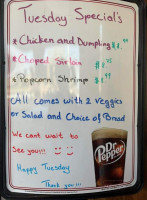 Tuesday Special's
*Chicken and Dumpling
*Chopped Sirloin
*Popcorn Shrimp
All comes with 2 Veggies
or Salad and Choice of Bread
We cant wait to
See you!!!
Happy Tuesday
Thank you!!!
Dr Pepper